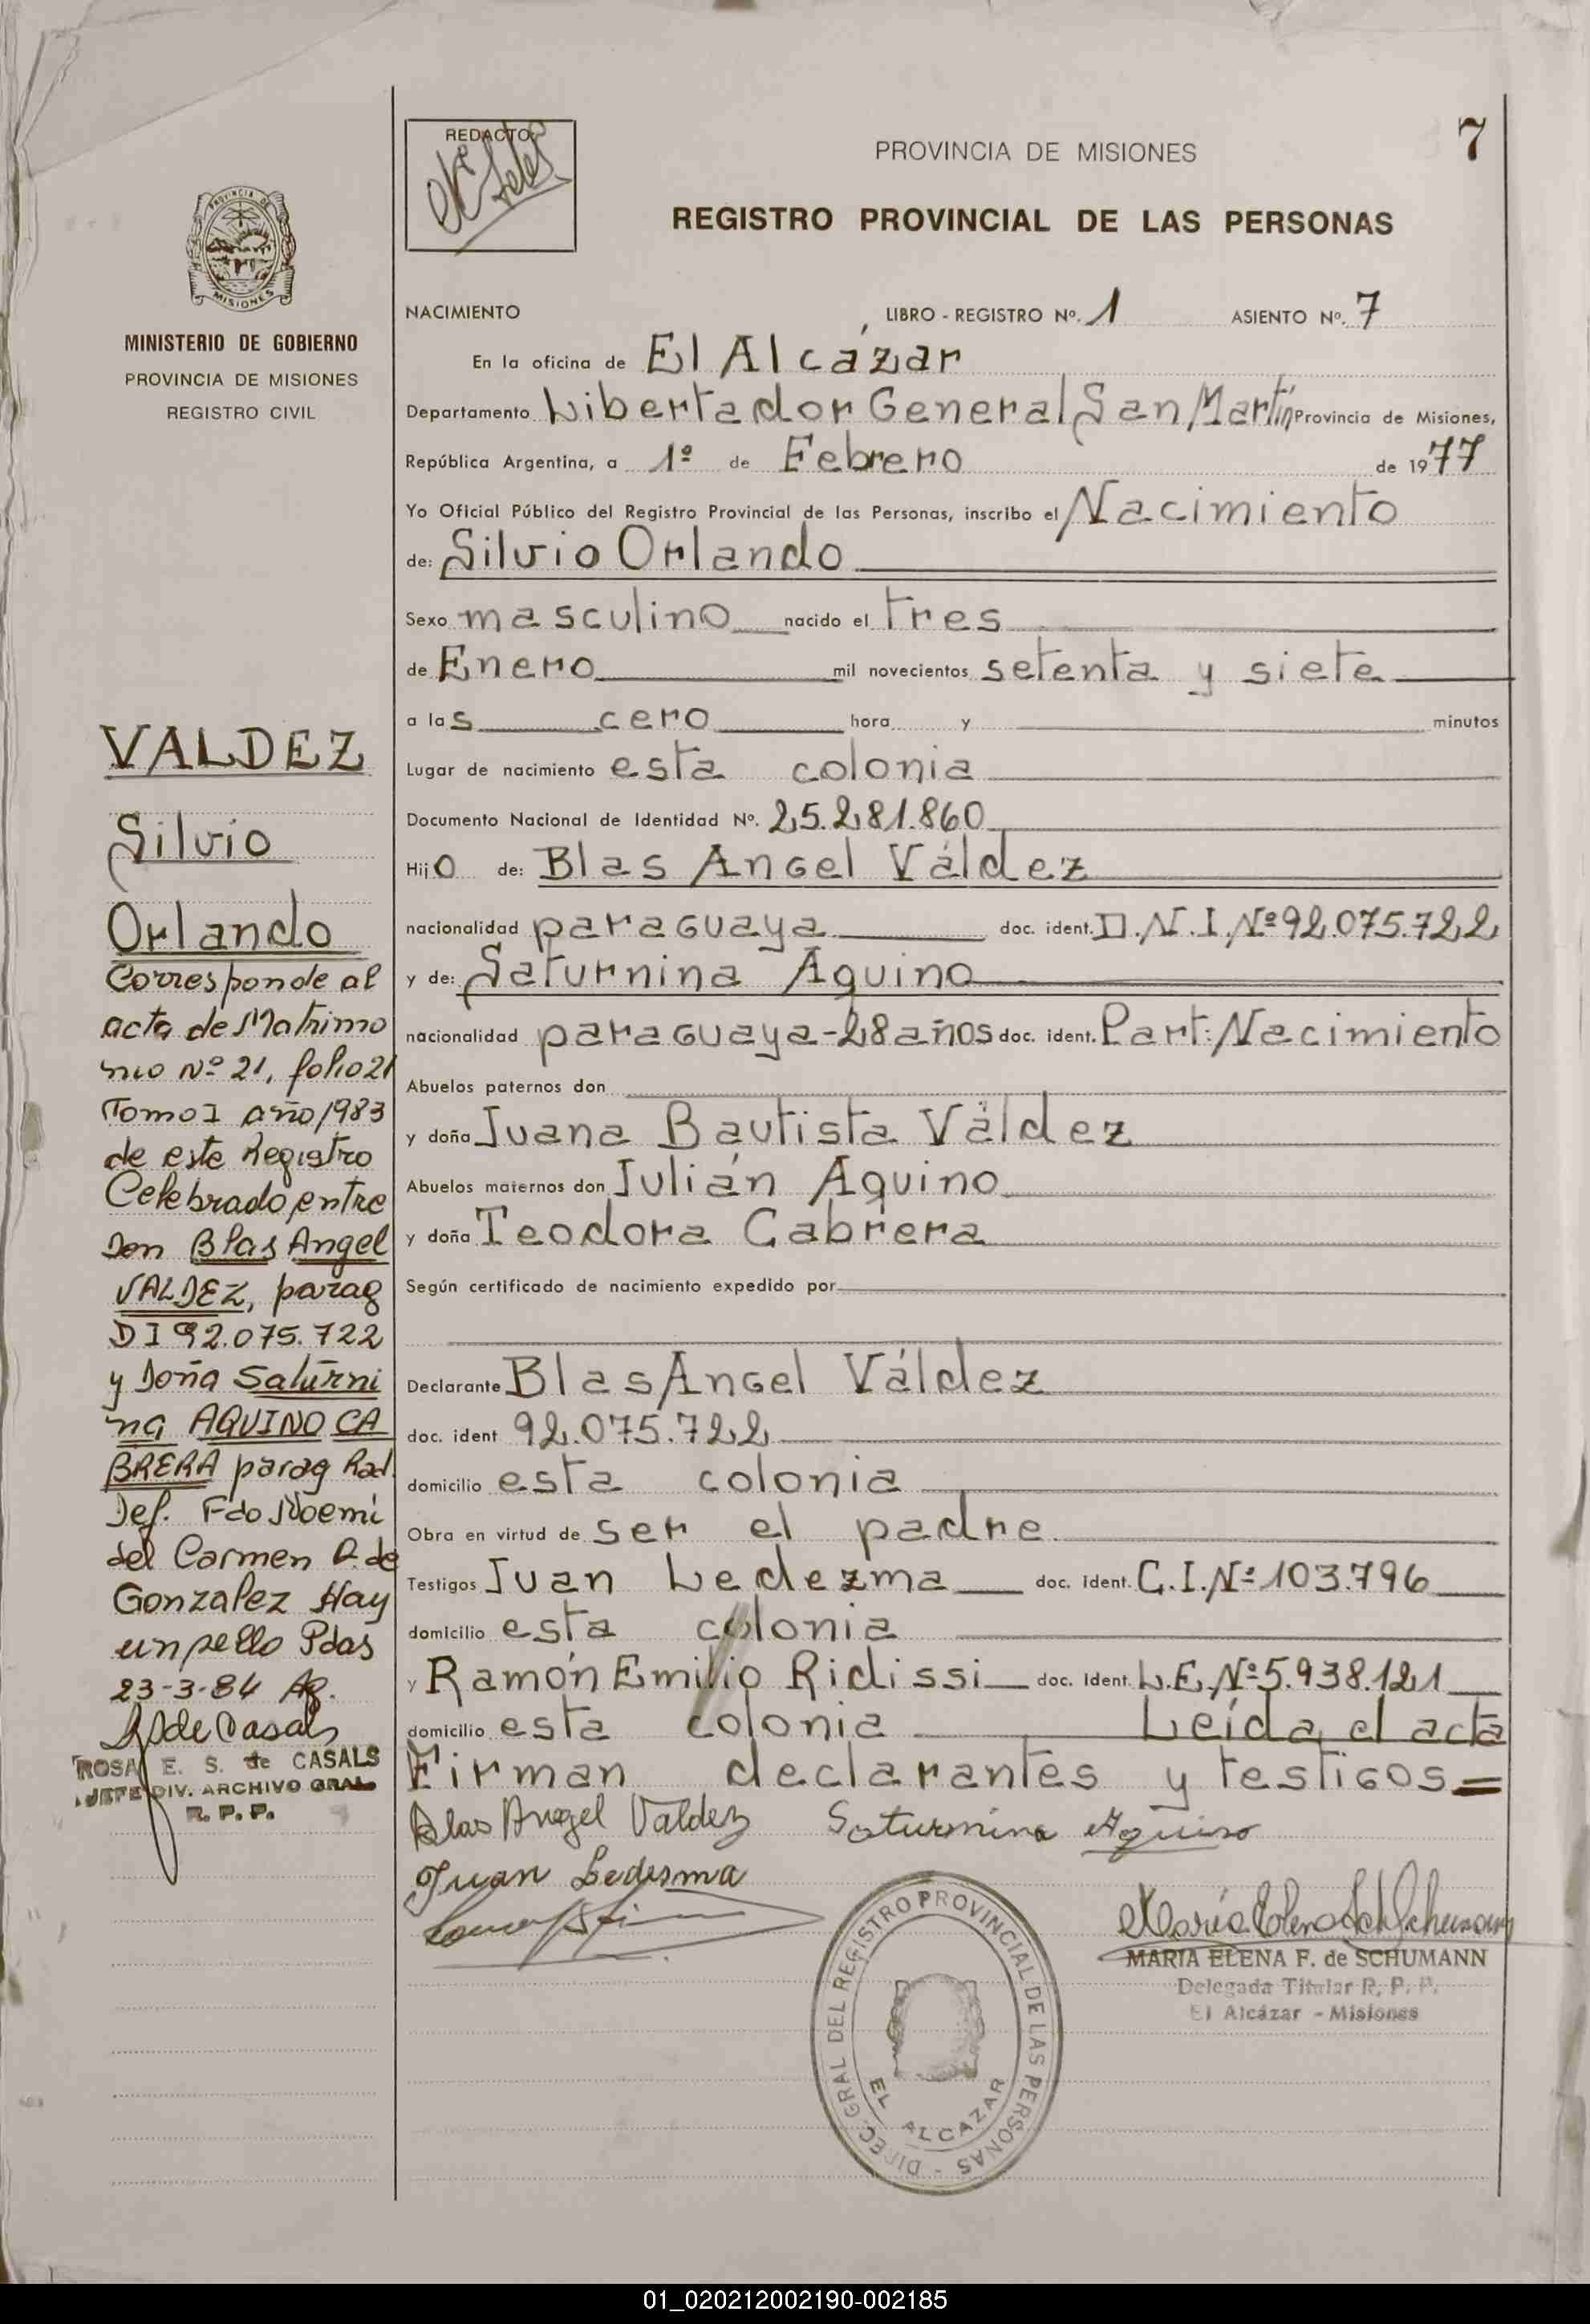 7
REDACTO
PROVINCIA DE MISIONES
REGISTRO PROVINCIAL DE LAS PERSONAS
PROVINCIA DE
MISIONES
MINISTERIO DE GOBIERNO
PROVINCIA DE MISIONES
REGISTRO CIVIL
VALDEZ
Silvio
Orlando
Corresponde al
acta de Matrimo
nio Nº 21, folio 21
Tomo I año 1983
de este Registro
Celebrado entre
Don Blas Angel
VALDEZ, parag
DI 92.075.722
y Doña Saturni
na AQUINO CA
BRERA parag Rad.
Def. Fdo Noemi
del Carmen D. de
Gonzalez Hay
un sello Pdas
23-3-84
de Casals
ROSA E. S. de CASALS
JEFE DIV. ARCHIVO GRAL
R. P. P.
NACIMIENTO LIBRO - REGISTRO Nº. 1 ASIENTO Nº. 7
En la oficina de El Alcázar
Departamento Libertador General San Martín Provincia de Misiones,
República Argentina, a 1º de Febrero de 1977
Yo Oficial Público del Registro Provincial de las Personas, inscribo el Nacimiento
de: Silvio Orlando
Sexo masculino nacido el tres
de Enero mil novecientos setenta y siete
a las cero hora y minutos
Lugar de nacimiento esta colonia
Documento Nacional de Identidad Nº. 25.281.860
Hijo de: Blas Angel Váldez
nacionalidad paraguaya doc. ident. D.N.I.Nº 92.075.722
y de: Saturnina Aquino
nacionalidad paraguaya-28 años doc. ident. Part: Nacimiento
Abuelos paternos don
y doña Juana Bautista Váldez
Abuelos maternos don Julián Aquino
y doña Teodora Cabrera
Según certificado de nacimiento expedido por
Declarante Blas Angel Váldez
doc. ident 92.075.722
domicilio esta colonia
Obra en virtud de ser el padre
Testigos Juan Ledezma doc. ident. C.I.Nº 103.796
domicilio esta colonia
y Ramón Emilio Ridissi doc. ident. L.E.Nº 5.938.121
domicilio esta colonia Leída el acta
Firman declarantes y testigos =
Blas Angel Valdez Saturnina Aquino
Juan Ledesma
MARIA ELENA F. de SCHUMANN
Delegada Titular R. P. P.
El Alcázar - Misiones
DIREC. GRAL DEL REGISTRO PROVINCIAL DE LAS PERSONAS -
EL ALCAZAR
01_020212002190-002185